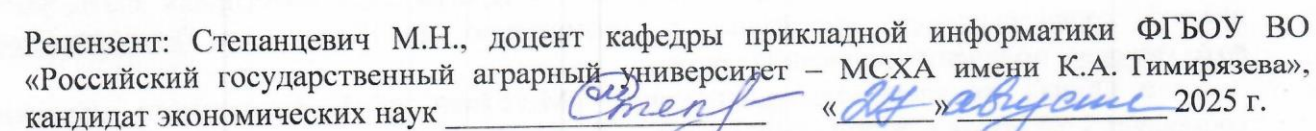 Рецензент: Степанцевич М.Н., доцент кафедры прикладной информатики ФГБОУ ВО
«Российский государственный аграрный университет – МСХА имени К.А. Тимирязева»,
кандидат экономических наук «27» августа 2025 г.